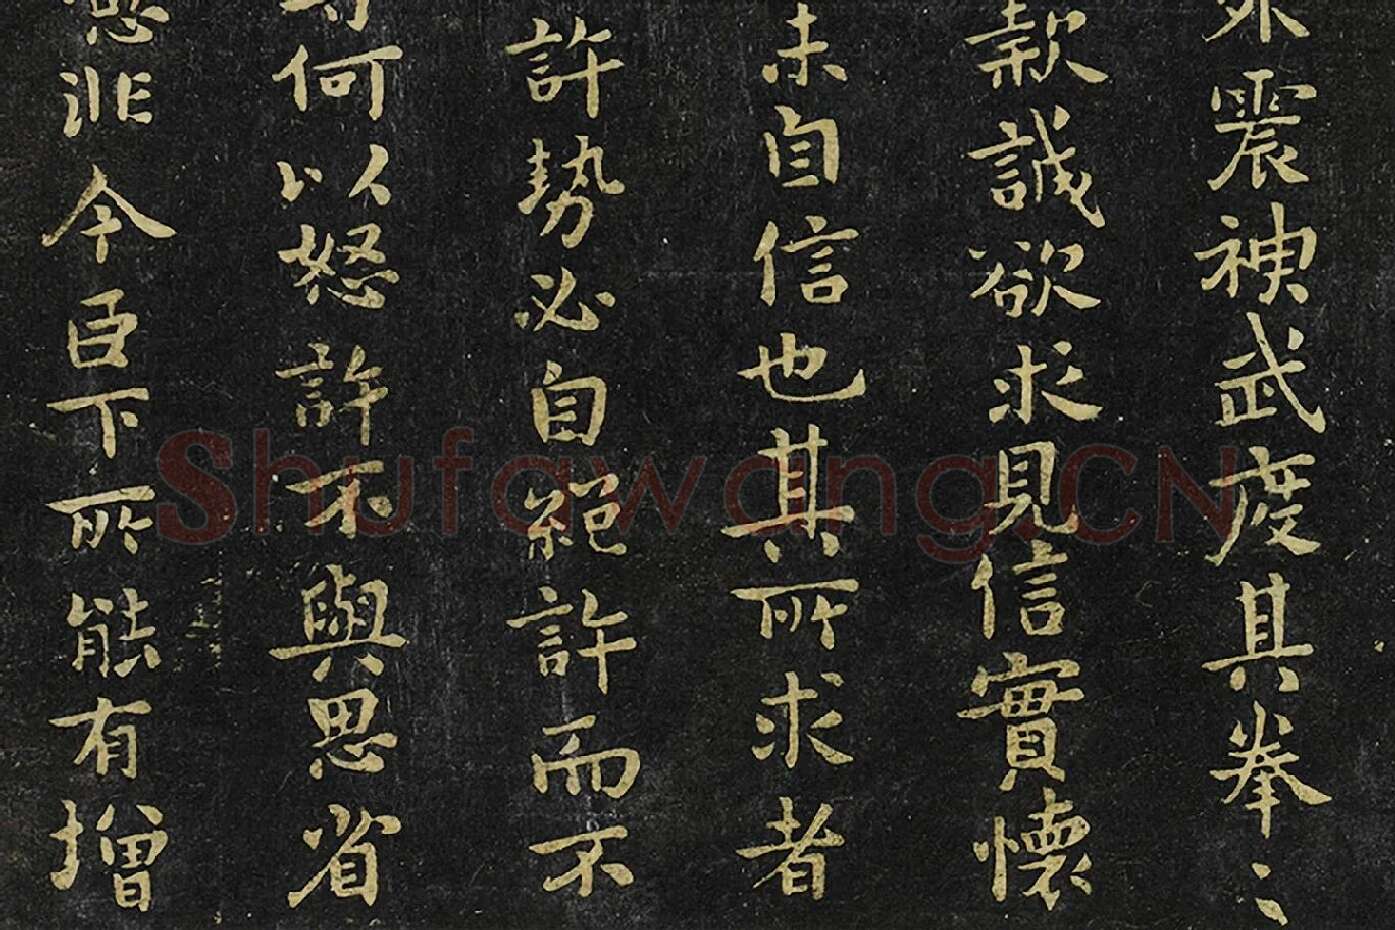 震神武度其拳〻
款誠欲求見信實懷
未自信也其所求者
許勢必自絕許而不
何以怒許不與思省
悲今臣下所能有增
Shufawang.CN